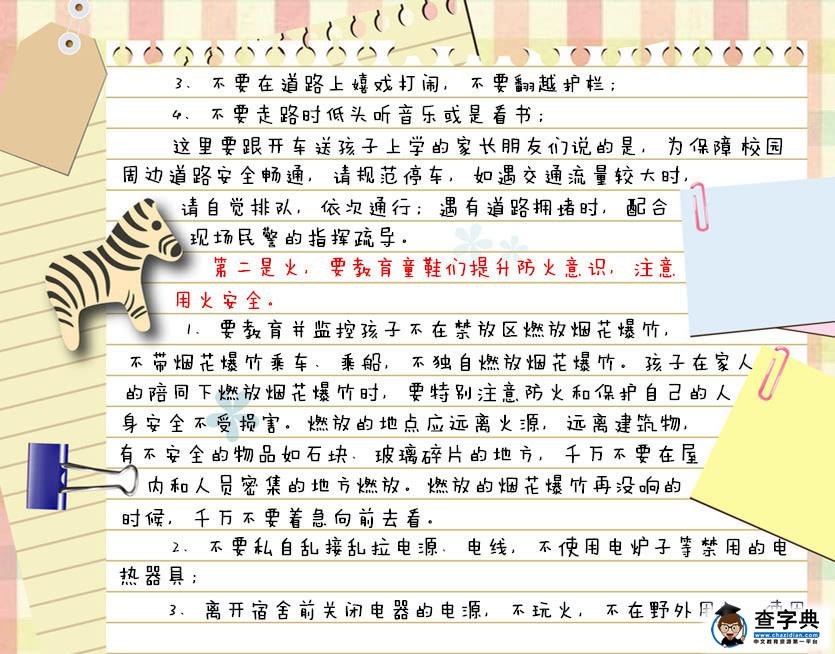 3、不要在道路上嬉戏打闹，不要翻越护栏；
4、不要走路时低头听音乐或是看书；
这里要跟开车送孩子上学的家长朋友们说的是，为保障校园
周边道路安全畅通，请规范停车，如遇交通流量较大时，
请自觉排队，依次通行；遇有道路拥堵时，配合
现场民警的指挥疏导。
第二是火，要教育童鞋们提升防火意识，注意
用火安全。
1、要教育并监控孩子不在禁放区燃放烟花爆竹，
不带烟花爆竹乘车、乘船，不独自燃放烟花爆竹。孩子在家人
的陪同下燃放烟花爆竹时，要特别注意防火和保护自己的人
身安全不受损害。燃放的地点应远离火源，远离建筑物，
有不安全的物品如石块、玻璃碎片的地方，千万不要在屋
内和人员密集的地方燃放。燃放的烟花爆竹再没响的
时候，千万不要着急向前去看。
2、不要私自乱接乱拉电源、电线，不使用电炉子等禁用的电
热器具；
3、离开宿舍前关闭电器的电源，不玩火，不在野外用
查字典
www.chazidian.com
中文教育资源第一平台